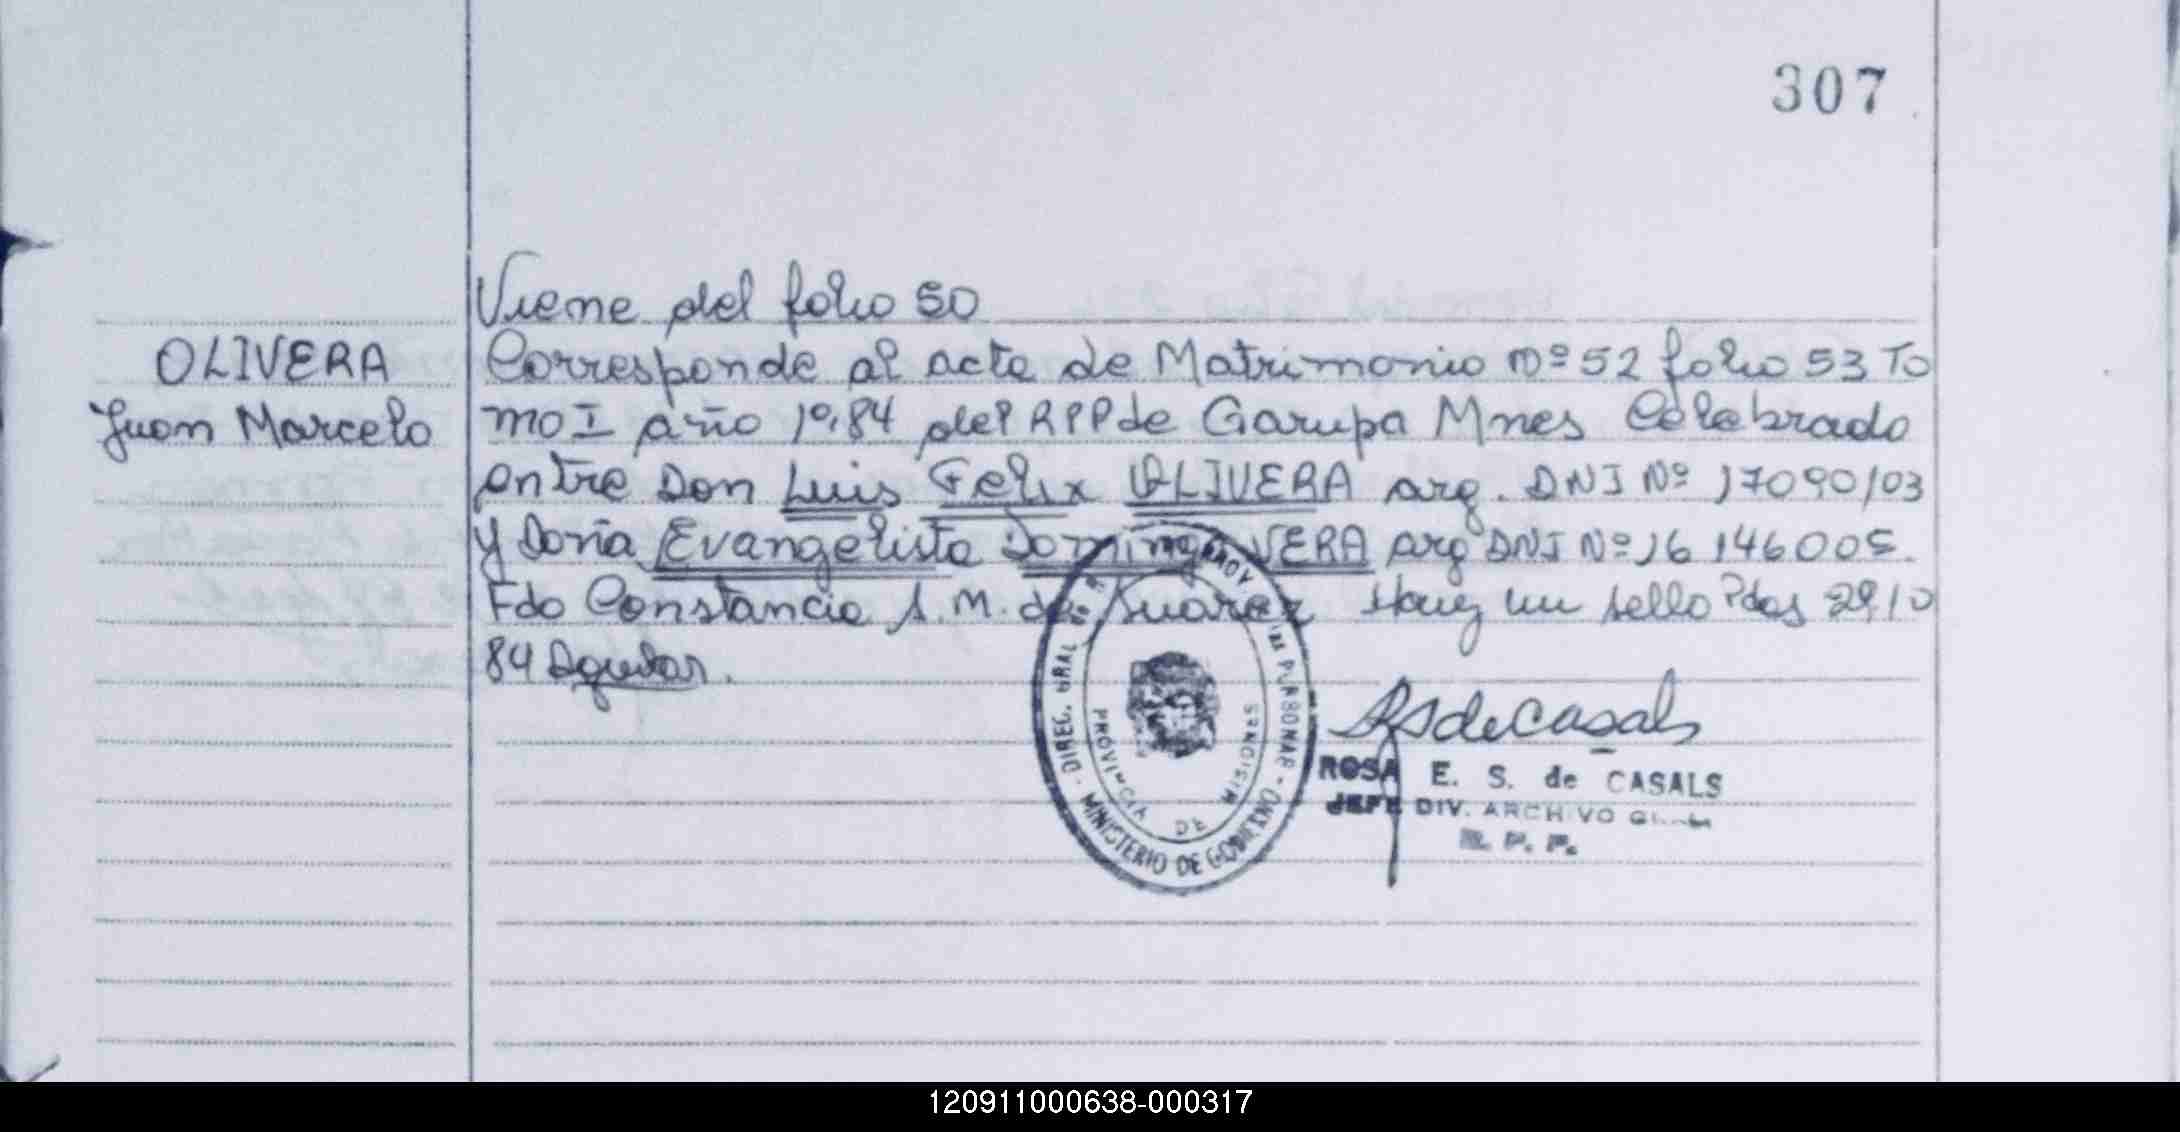 307
Viene del folio 50
OLIVERA
Juan Marcelo
Corresponde al acta de Matrimonio Nº 52 folio 53 To
mo I año 1984 del RPP de Garupa Mnes Celebrado
entre Don Luis Felix OLIVERA arg. DNI Nº 17090103
y Doña Evangelista Dominga VERA arg DNI Nº 16 146005
Fdo Constancia S. M. de Suarez Hay un sello Pdas 29/10
84
DIREC. GRAL
MINISTERIO DE GOBIERNO
PROVINCIA DE MISIONES
RS de Casals
ROSA E. S. de CASALS
JEFE DIV. ARCHIVO
R. P. P.
120911000638-000317